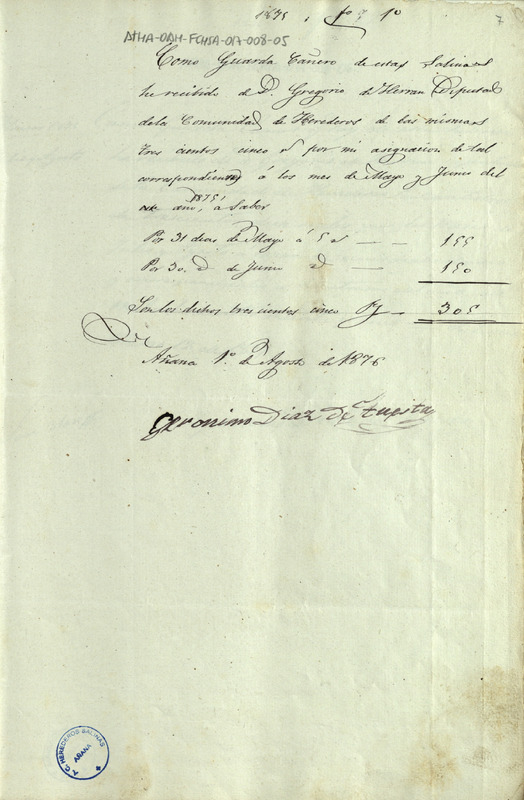 1875, fo 7 1º
7
ATHA-DAH-FCHSA-017-008-05
Como Guarda Cañero de estas Salinas
he recibido de D. Gregorio de Herran Diputado
de la Comunidad de Herederos de las mismas
tres cientos cinco rs por mi asignacion de tal
correspondientes á los mes de Mayo y Junio del
año, 1875, á Saber
Por 31 dias de Mayo á 5 rs — 155
Por 30. id de Junio id — 150
Son los dichos tres cientos cinco rs — 305
Añana 1º de Agosto de 1876
Geronimo Diaz de Tuesta
A.C. HEREDEROS SALINAS
AÑANA